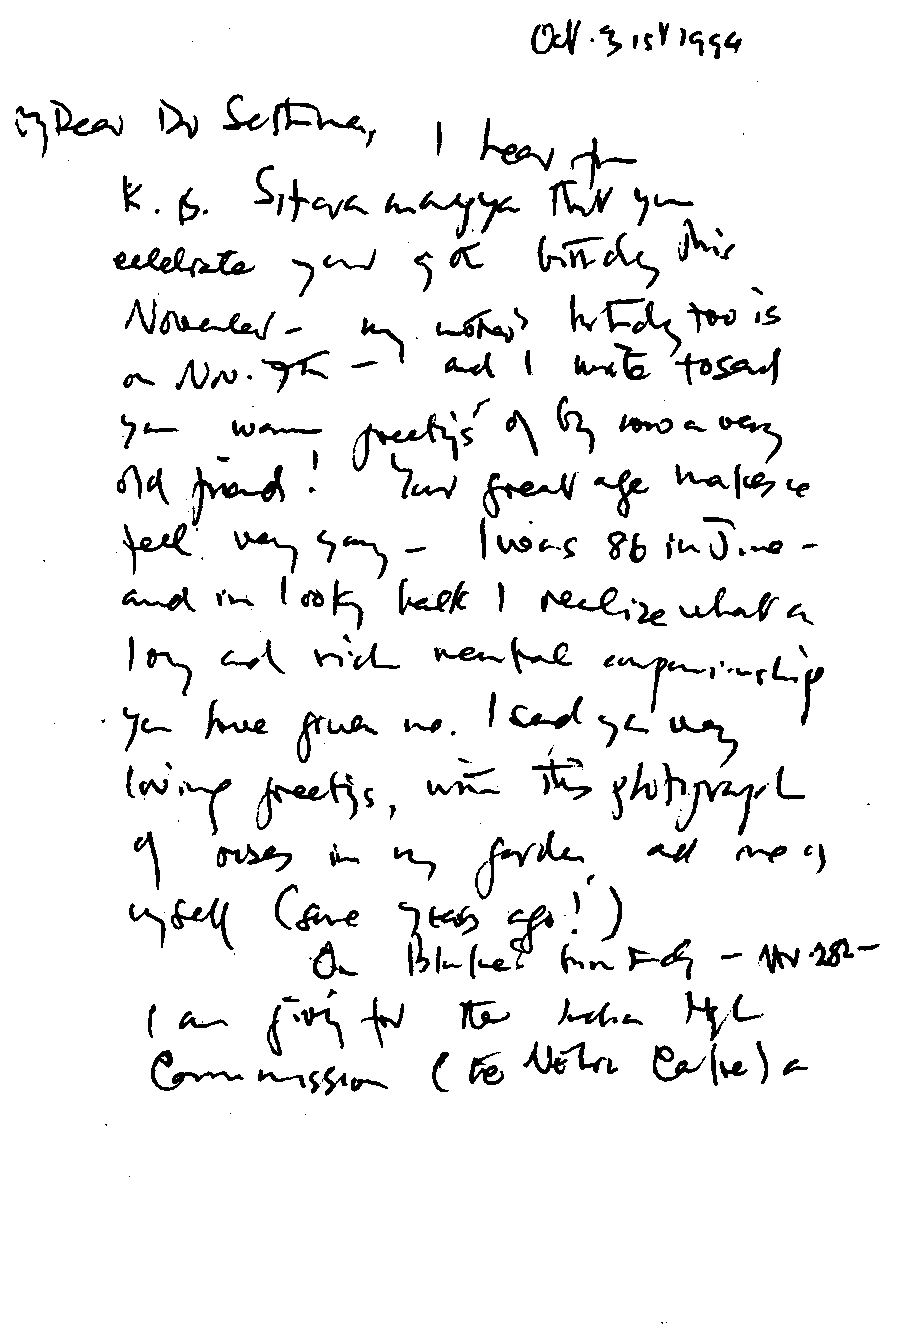 Oct. 31st 1994
My Dear Dr Sethna,
I hear from
K. B. Sitaramayya that you
celebrate your 90th birthday this
November – my mother's birthday too is
on Nov. 7th – and I write to send
you warm greetings of by now a very
old friend! Your great age makes me
feel very young – I was 86 in June –
and in looking back I realize what a
long and rich mental companionship
you have given me. I send you my
loving greetings, with this photograph
of roses in my garden and one of
myself (some years ago!)
On Blake's birthday – Nov. 28th –
I am giving for the Indian High
Commission (the Nehru Centre) a